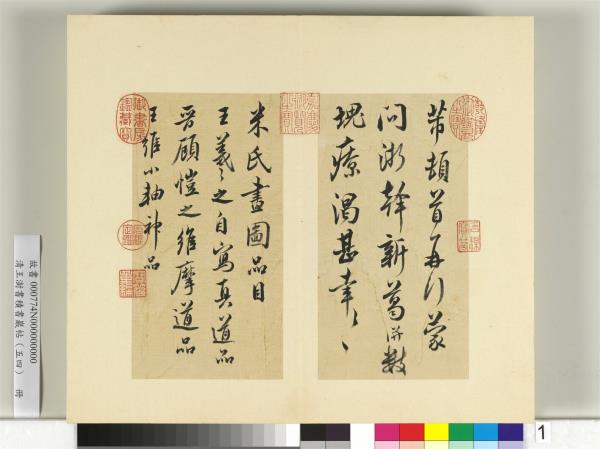 芾頓首再行蒙
問浙幹新葛并數
塊療渴甚幸々
米氏畫圖品目
王羲之自寫真道品
晉顧愷之維摩道品
王維小軸神品
故書 000774N000000000
清王澍書積書巖帖（五四） 冊
1